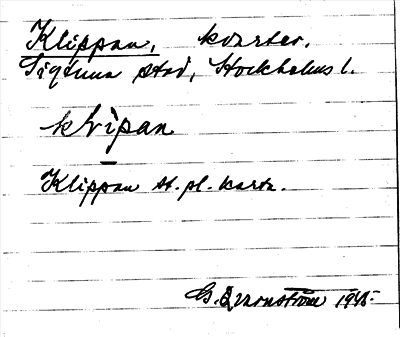 Klippan, kvarter.
Sigtuna stad, Stockholms l.
klìpan
Klippan st. pl. karta.
G. Qvarnström 1945.